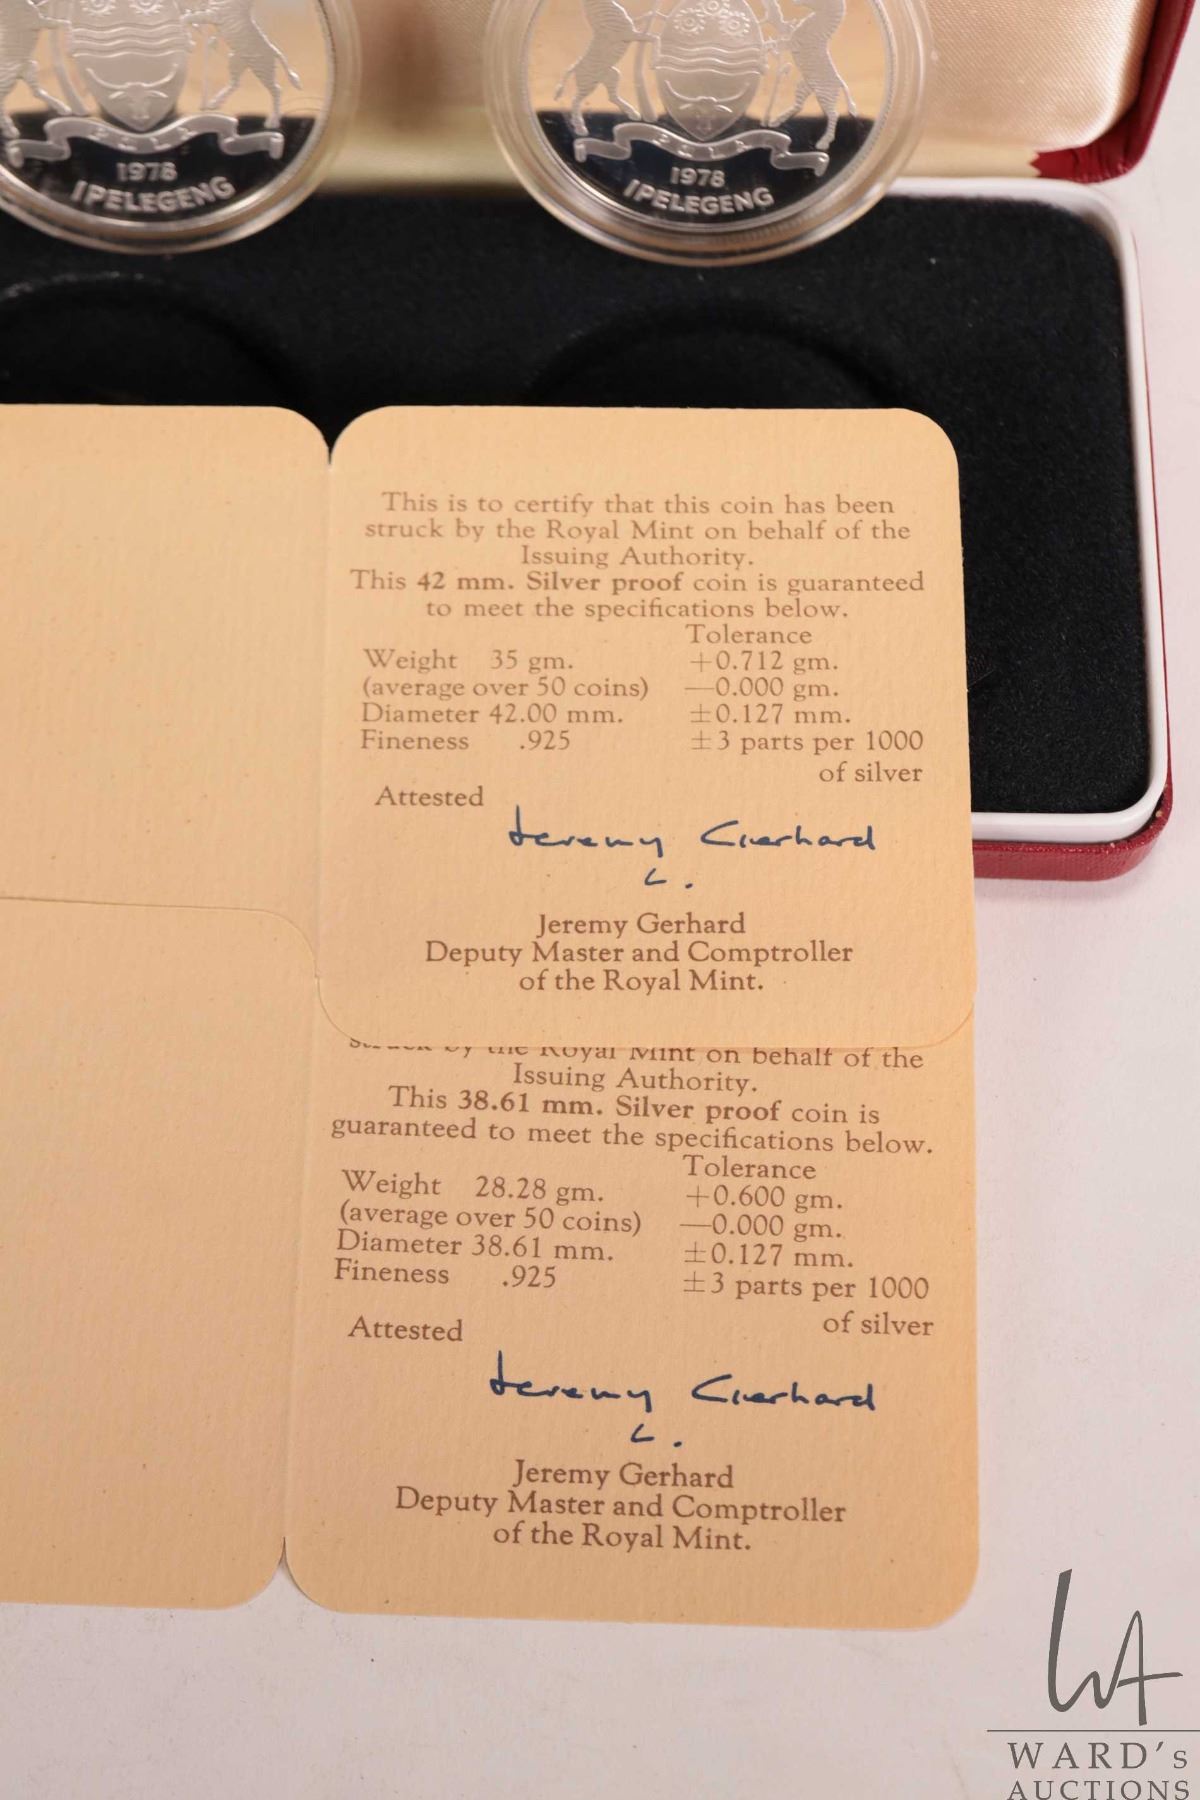 PULA
1978
IPELEGENG
PULA
1978
IPELEGENG
This is to certify that this coin has been
struck by the Royal Mint on behalf of the
Issuing Authority.
This 42 mm. Silver proof coin is guaranteed
to meet the specifications below.
Tolerance
Weight 35 gm. +0.712 gm.
(average over 50 coins) —0.000 gm.
Diameter 42.00 mm. ±0.127 mm.
Fineness .925 ±3 parts per 1000
of silver
Attested
Jeremy Gerhard
Jeremy Gerhard
Deputy Master and Comptroller
of the Royal Mint.
struck by the Royal Mint on behalf of the
Issuing Authority.
This 38.61 mm. Silver proof coin is
guaranteed to meet the specifications below.
Tolerance
Weight 28.28 gm. +0.600 gm.
(average over 50 coins) —0.000 gm.
Diameter 38.61 mm. ±0.127 mm.
Fineness .925 ±3 parts per 1000
of silver
Attested
Jeremy Gerhard
Jeremy Gerhard
Deputy Master and Comptroller
of the Royal Mint.
WA
WARD's
AUCTIONS